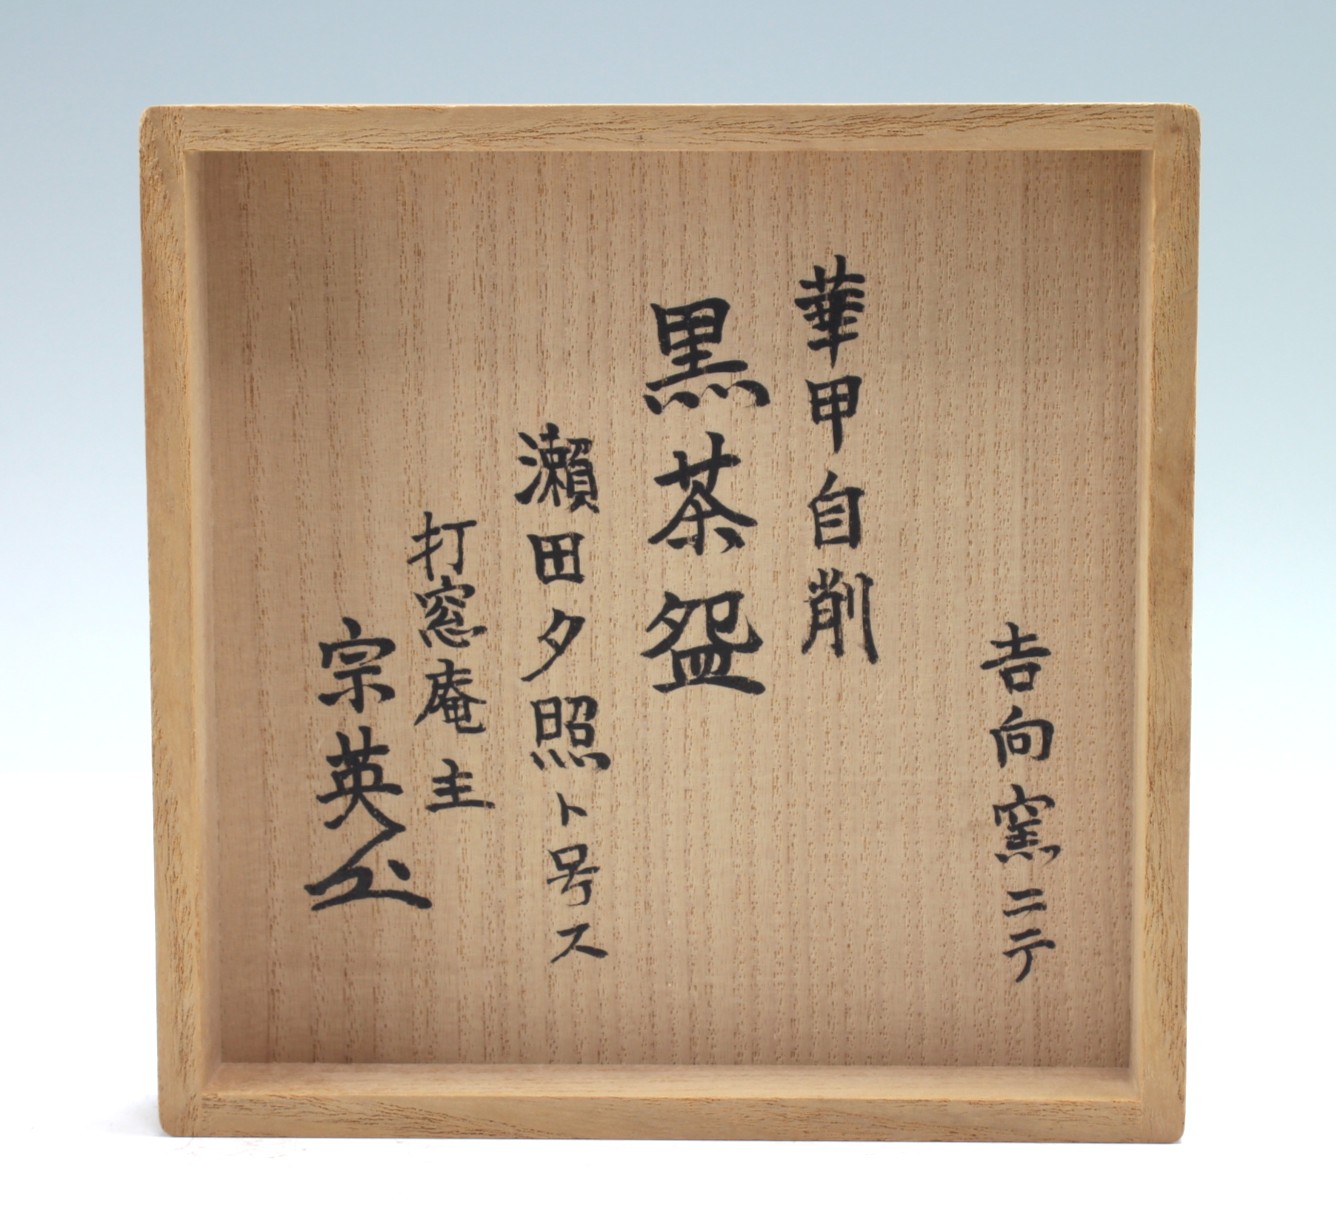 吉向窯ニテ
華甲自削
黒茶盌
瀬田夕照ト号ス
打窓庵主
宗英